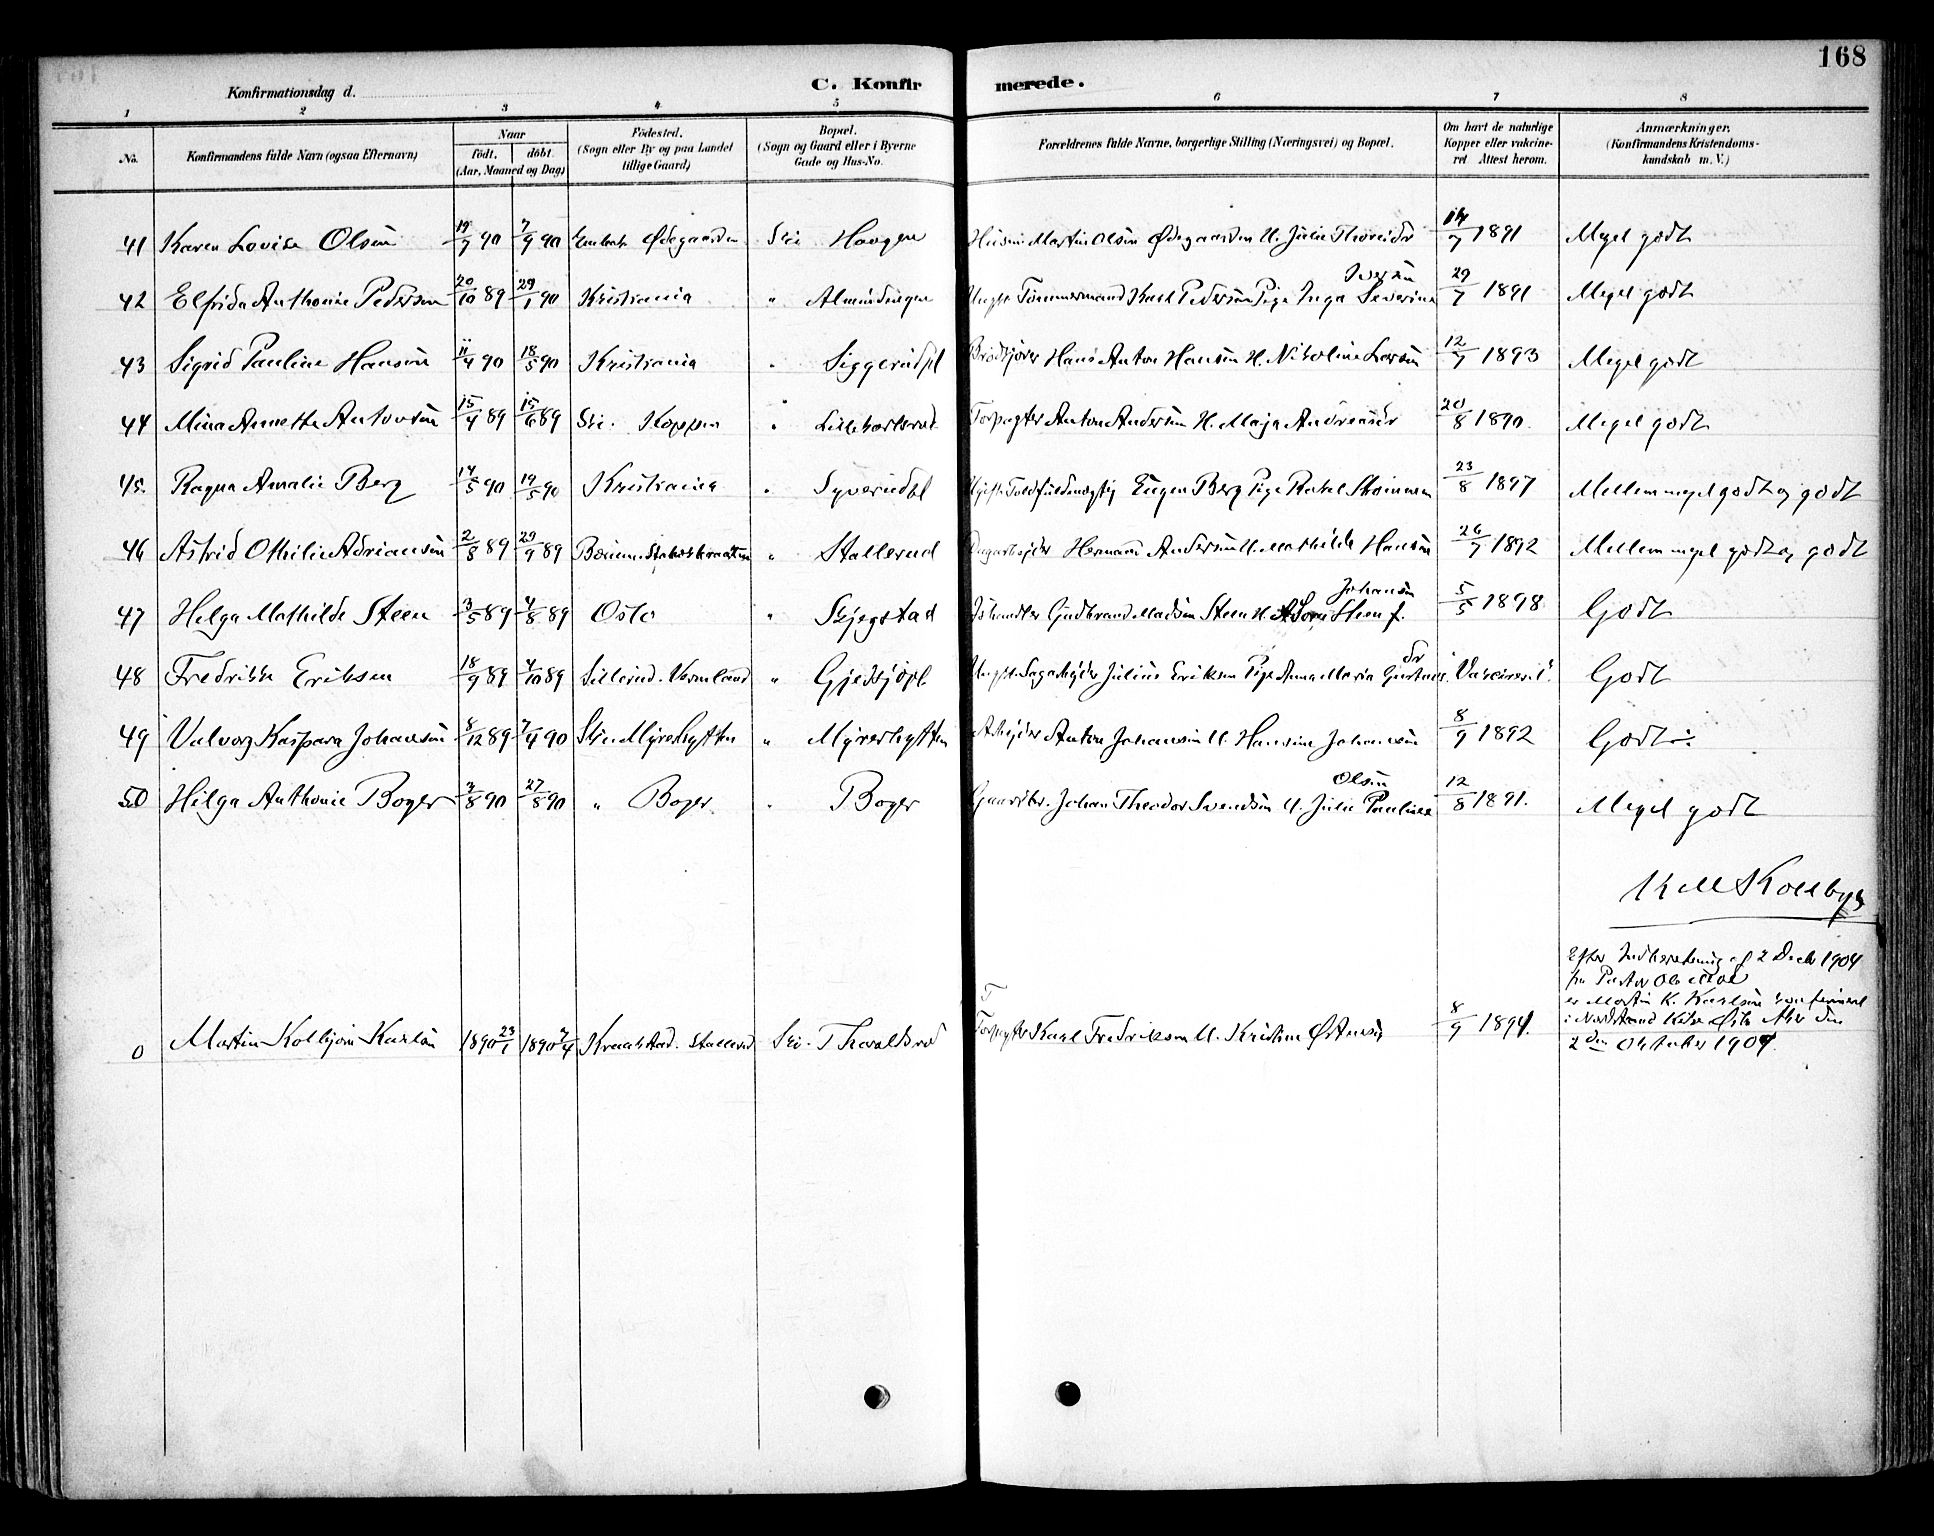 168
Konfirmationsdag d.
C. Konfirmerede.
1 2 3 4 5 6 7 8
No. Konfirmandens fulde Navn (ogsaa Efternavn) Naar født, døbt (Aar, Maaned og Dag) Fødested. (Sogn eller By og paa Landet tillige Gaard) Bopæl. (Sogn og Gaard eller i Byerne Gade og Hus-No. Forældrenes fulde Navne, borgerlige Stilling (Næringsvei) og Bopæl. Om havt de naturlige Kopper eller vakcineret Attest herom. Anmærkninger. (Konfirmandens Kristendomskundskab m. V.)
41 Karen Lovise Olsen 19/7 90 7/9 90 Enebak Ødegaarden Ski Haugen Husm. Martin Olsen Ødegaarden H. Julie 14/7 1891 Meget godt
42 Elfrida Anthonie Pedersen 20/10 89 29/1 90 Kristiania " Almindingen Ungk. Tømmermand Karl Pedersen Pige Inga Severine Iversen 29/7 1891 Meget godt
43 Sigrid Pauline Hansen 11/4 90 18/5 90 Kristiania " Siggerudpl Brødkjører Hans Anton Hansen H. Nikoline Larsen 12/7 1893 Meget godt
44 Mina Annette Antonsen 15/4 89 15/6 89 Ski. Koppen " Forpagter Anton Andersen H. Maja Andreasdr 20/8 1890. Meget godt
45. Ragna Amalie Berg 14/5 90 19/5 90 Kristiania " Syverudpl Ugift Toldfuldmægtig Eugen Berg Pige Rakel 23/8 1897 Mellem meget godt og godt
46 Astrid Othilie Adriansen 2/8 89 29/9 89 Bærum " Stallerud Dagarbejder Hermann Andersen H. Mathilde Hansen 26/7 1892 Mellem meget godt og godt
47 Helga Mathilde Steen 3/5 89 4/8 89 Oslo " Skjegstad Gudbrand Madsen Steen H. Johansen 5/5 1898 Godt
48 Fredrikke Eriksen 18/9 89 4/10 89 Sillerud. Vermland " Gjedsjøpl Ungk. Sagarbejder Julius Eriksen Pige Anna Maria Gustavsdr Godt
49 Valborg Kaspara Johansen 8/12 89 7/4 90 Ski. Myrerhytten " Myrerhytten Arbejder Anton Johansen H. Hansine Johannesen 8/9 1892 Godt
50 Helga Anthonie Boger 3/8 90 27/8 90 " Boger " Boger Gaardbr. Johan Theodor Svendsen H. Julie Pauline Olsen 12/8 1891. Meget godt
K M Kolbye
0 Martin Kolbjørn Karlsen 1890 23/1 1890 7/4 Kraakstad. Stallerud Ski. Thoraldrud Forpagter Karl Fredriksen H. Kristine Østensen 8/9 1894.
Efter Indberetning af 2 Decbr 1904
fra Pastor
er Martin K. Karlsen konfirmeret
i Nordstrand Kirke Østre Aker den
2den Oktober 1904.